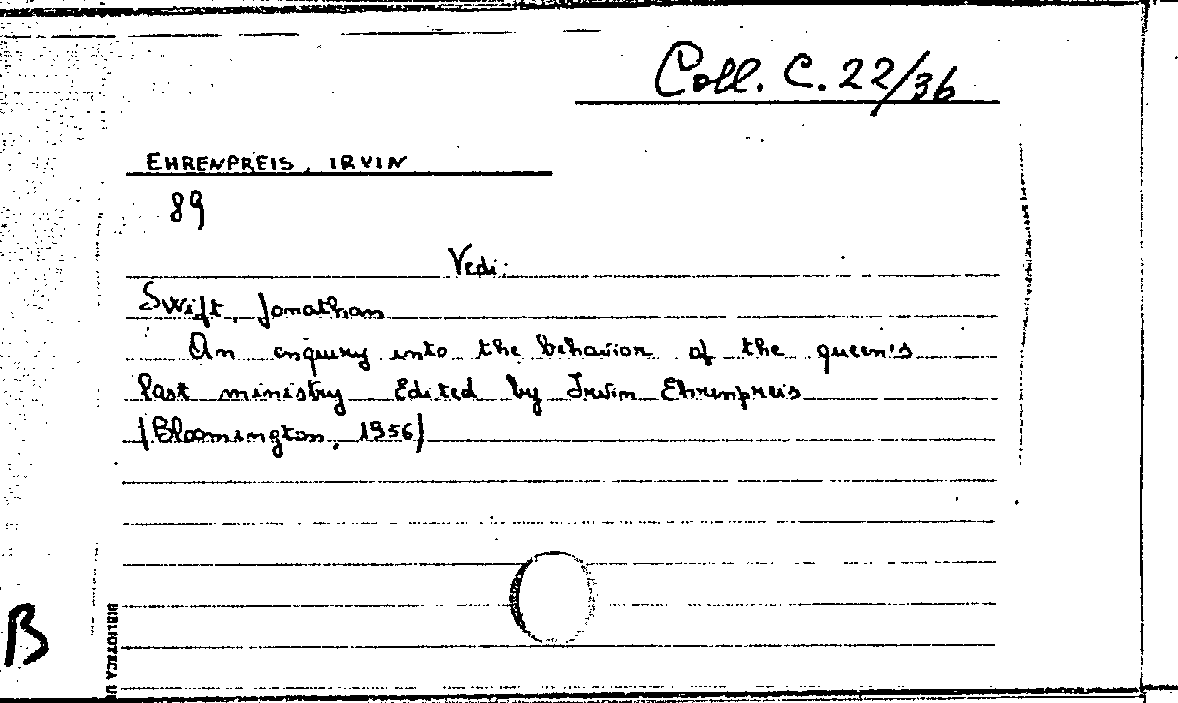 Coll. C. 22/36
EHRENPREIS, IRVIN
89
Vedi:
Swift, Jonathan
An enquiry into the behavior of the queen's
last ministry Edited by Irvin Ehrenpreis
(Bloomington, 1956)
B
BIBLIOTECA